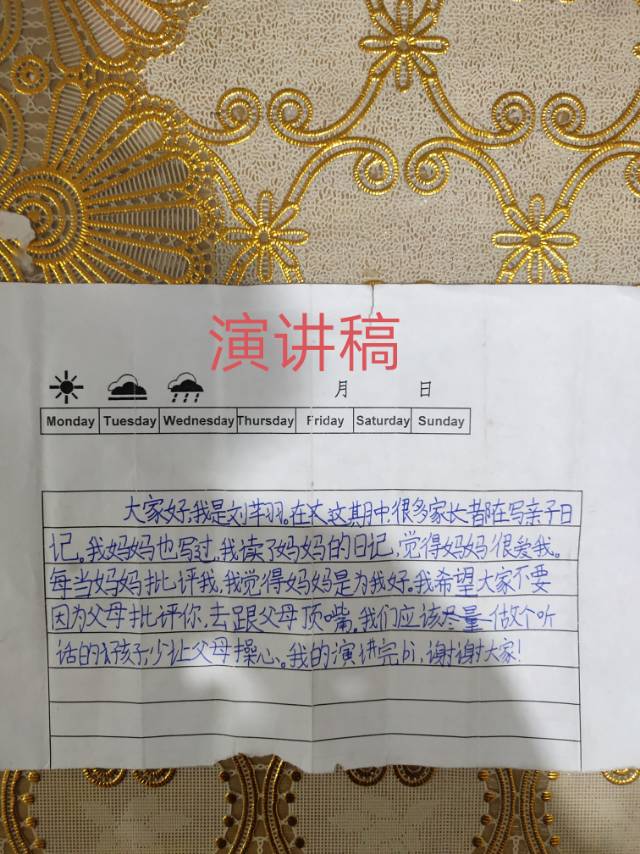 演讲稿
月 日
Monday Tuesday Wednesday Thursday Friday Saturday Sunday
大家好,我是刘芊羽。在这期中,很多家长都在写亲子日
记。我妈妈也写过,我读了妈妈的日记,觉得妈妈很爱我。
每当妈妈批评我,我觉得妈妈是为我好。我希望大家不要
因为父母批评你,去跟父母顶嘴。我们应该尽量做个听
话的好孩子,少让父母操心。我的演讲完bi,谢谢大家!